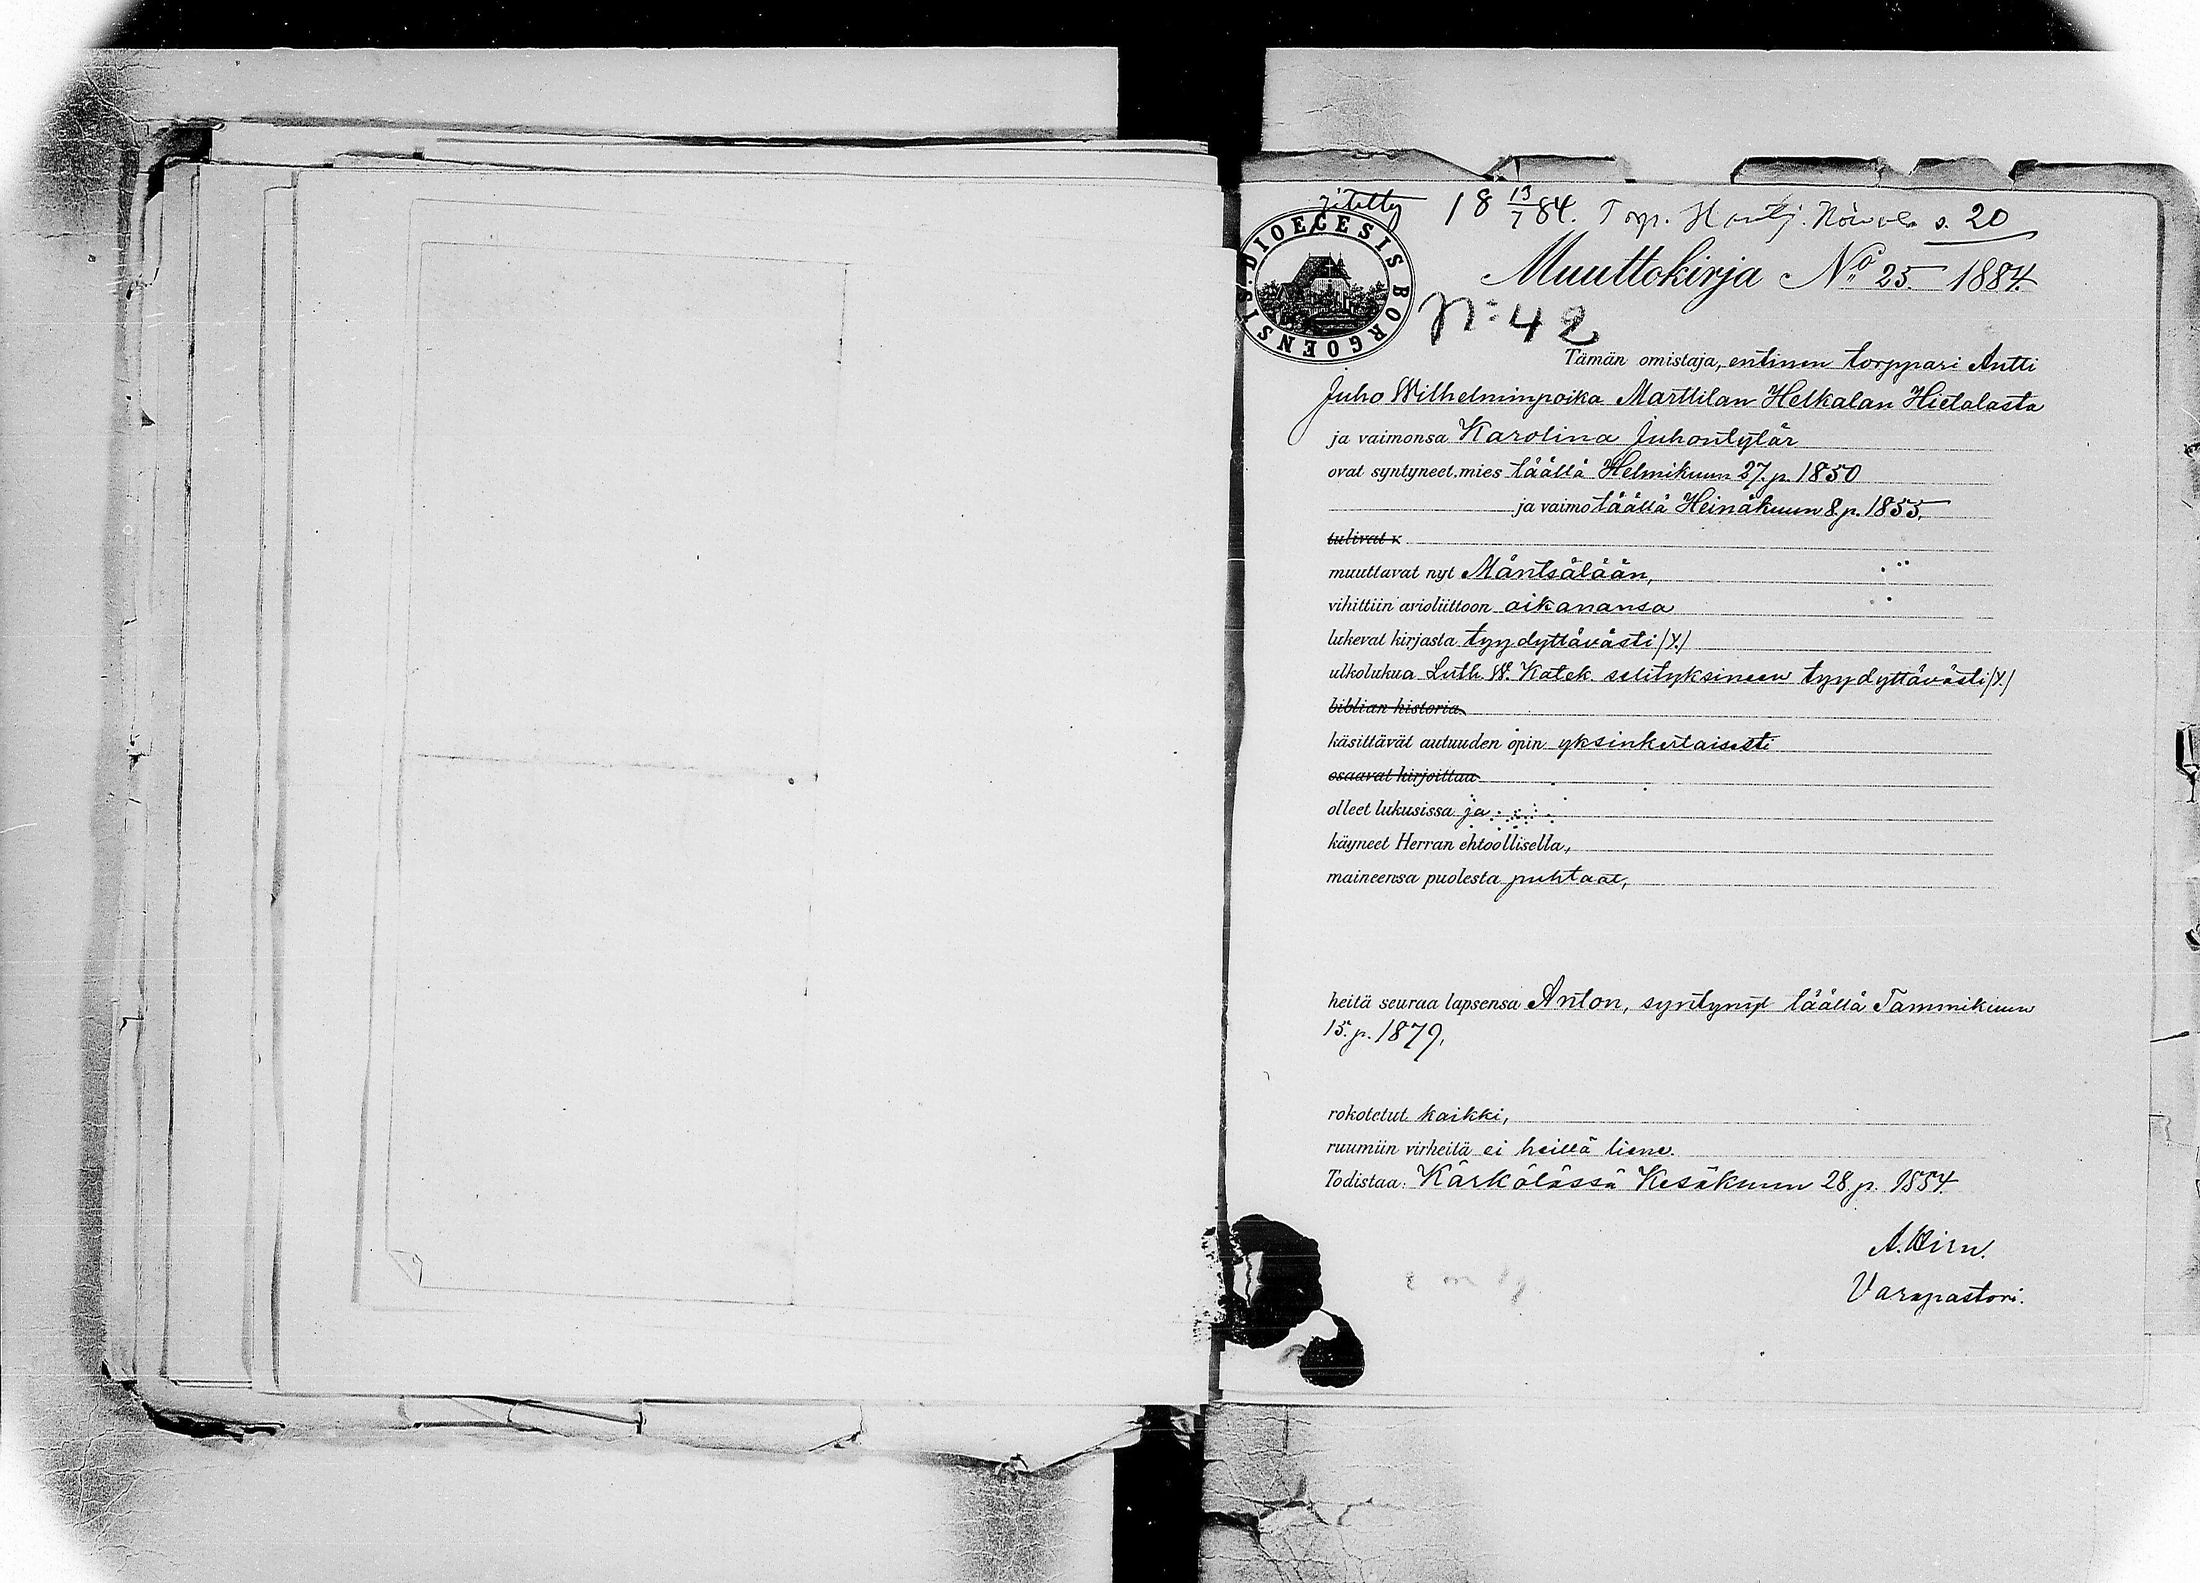 jätetty 18 13/7 84. Torp. s. 20
DIOECESIS BORGOENSIS.
Muuttokirja No 25 1884.
N:42
Tämän omistaja, entinen torppari Antti
Juho Wilhelminpoika Marttilan Helkalan Hietalasta
ja vaimonsa Karolina Juhontytär
ovat syntyneet, mies täällä Helmikuun 27. p. 1850
ja vaimo täällä Heinäkuun 8. p. 1855,
tulivat
muuttavat nyt Mäntsälään,
vihittiin avioliittoon aikanansa
lukevat kirjasta tyydyttävästi (Y.)
ulkolukua Luth. W. Katek. selityksineen tyydyttävästi (Y.)
biblian historia
käsittävät autuuden opin yksinkertaisesti
osaavat kirjoittaa
olleet lukusissa ja
käyneet Herran ehtoollisella,
maineensa puolesta puhtaat,
heitä seuraa lapsensa Anton, syntynyt täällä Tammikuun
15. p. 1879,
rokotetut kaikki,
ruumiin virheitä ei heillä liene.
Todistaa: Kärkölässä Kesäkuun 28 p. 1884.
A. Hirn.
Varapastori.